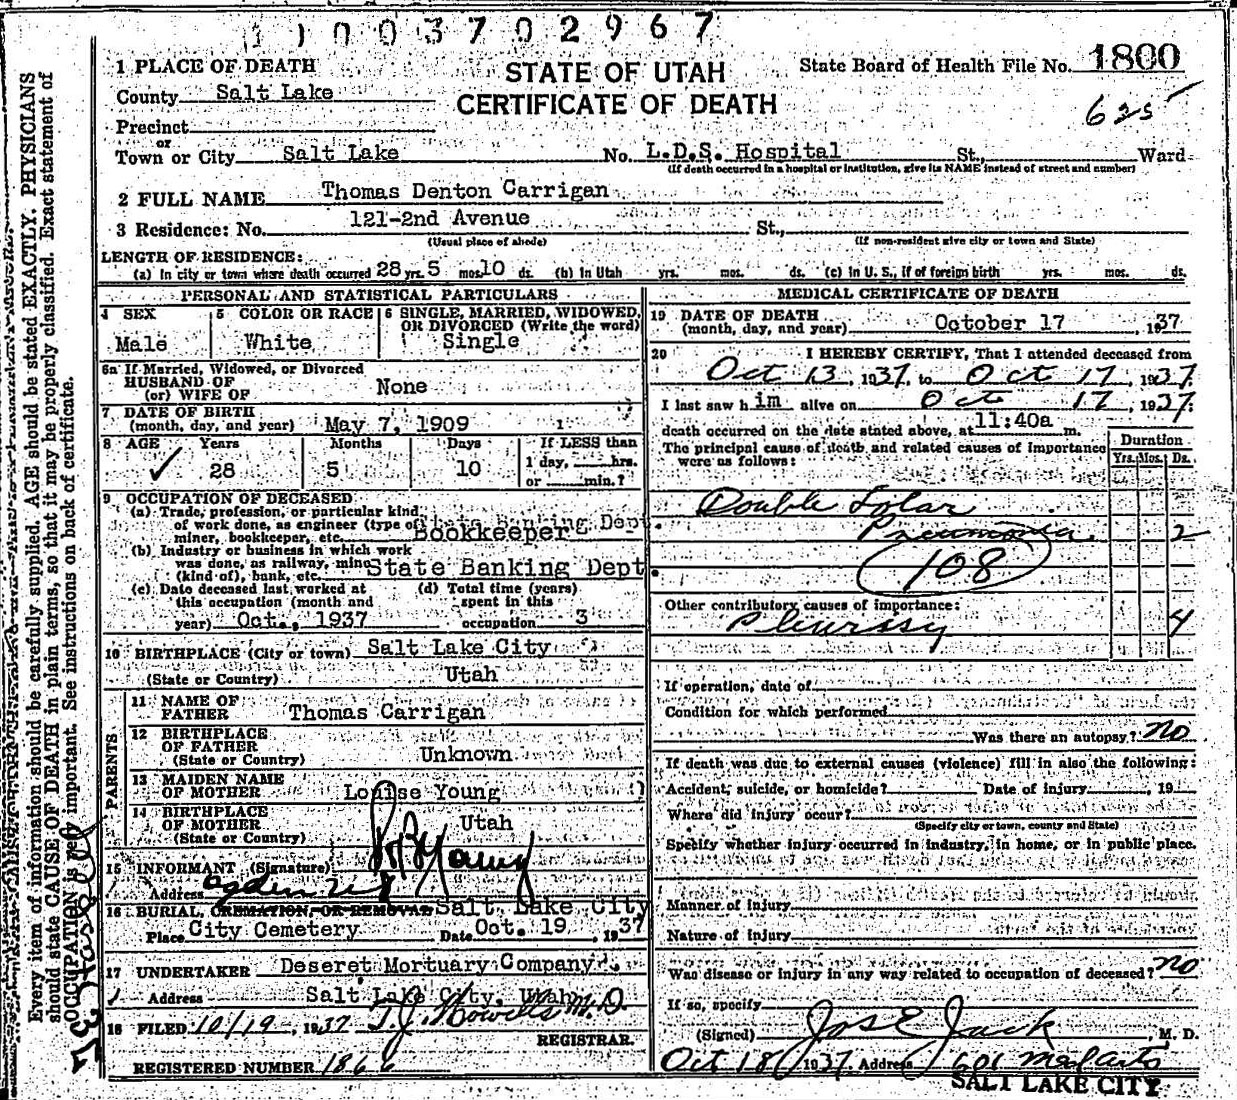 1 1 0 0 3 7 0 2 9 6 7
1 PLACE OF DEATH
STATE OF UTAH
CERTIFICATE OF DEATH
State Board of Health File No. 1800
625
County Salt Lake
Precinct
or
Town or City Salt Lake No. L.D.S. Hospital St., Ward
(If death occurred in a hospital or institution, give its NAME instead of street and number)
2 FULL NAME Thomas Denton Carrigan
3 Residence: No. 121-2nd Avenue St.,
(Usual place of abode) (If non-resident give city or town and State)
LENGTH OF RESIDENCE:
(a) In city or town where death occurred 28 yrs. 5 mos. 10 ds. (b) In Utah yrs. mos. ds. (c) In U. S., if of foreign birth yrs. mos. ds.
PERSONAL AND STATISTICAL PARTICULARS
4 SEX
Male
5 COLOR OR RACE
White
6 SINGLE, MARRIED, WIDOWED,
OR DIVORCED (Write the word)
Single
6a If Married, Widowed, or Divorced
HUSBAND OF
(or) WIFE OF None
7 DATE OF BIRTH
(month, day, and year) May 7, 1909
8 AGE Years Months Days If LESS than
28 5 10 1 day, hrs.
or min.?
9 OCCUPATION OF DECEASED
(a) Trade, profession, or particular kind
of work done, as engineer (type of State Banking Dept.
miner, bookkeeper, etc. Bookkeeper
(b) Industry or business in which work
was done, as railway, mine
(kind of), bank, etc. State Banking Dept.
(c) Date deceased last worked at
this occupation (month and
year) Oct., 1937
(d) Total time (years)
spent in this
occupation 3
10 BIRTHPLACE (City or town) Salt Lake City
(State or Country) Utah
PARENTS
11 NAME OF
FATHER Thomas Carrigan
12 BIRTHPLACE
OF FATHER
(State or Country) Unknown
13 MAIDEN NAME
OF MOTHER Louise Young
14 BIRTHPLACE
OF MOTHER
(State or Country) Utah
15 INFORMANT (Signature) Young
Address Ogden
16 BURIAL, CREMATION, OR REMOVAL Salt Lake City
Place City Cemetery Date Oct. 19, 1937
17 UNDERTAKER Deseret Mortuary Company
Address Salt Lake City, Utah
18 FILED 10/19, 1937 T.J. Howells M.D.
REGISTRAR.
REGISTERED NUMBER 1866
MEDICAL CERTIFICATE OF DEATH
19 DATE OF DEATH
(month, day, and year) October 17, 1937
20 I HEREBY CERTIFY, That I attended deceased from
Oct 13, 1937, to Oct 17, 1937
I last saw him alive on Oct 17, 1937:
death occurred on the date stated above, at 11:40a m.
The principal cause of death and related causes of importance
were as follows:
Duration
Yrs. Mos. Ds.
Double Lobar
Pneumonia. 2
108
Other contributory causes of importance:
Pleurisy 4
If operation, date of
Condition for which performed
Was there an autopsy? No
If death was due to external causes (violence) fill in also the following:
Accident, suicide, or homicide? Date of injury, 19
Where did injury occur?
(Specify city or town, county and State)
Specify whether injury occurred in industry, in home, or in public place.
Manner of injury
Nature of injury
Was disease or injury in any way related to occupation of deceased? No
If so, specify
(Signed) Jos E Jack, M. D.
Oct 18 1937. Address 601 Med Arts
SALT LAKE CITY
Every item of information should be carefully supplied. AGE should be stated EXACTLY. PHYSICIANS
should state CAUSE OF DEATH in plain terms, so that it may be properly classified. Exact statement of
OCCUPATION is very important. See instructions on back of certificate.